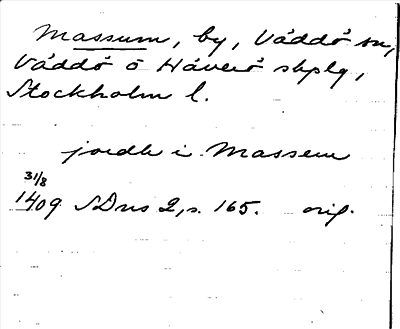 Massum, by, Väddö sn,
Väddö o Häverö skplg,
Stockholm l.
jordh i Massem
31/8
1409 SDns 2, s. 165. orig.